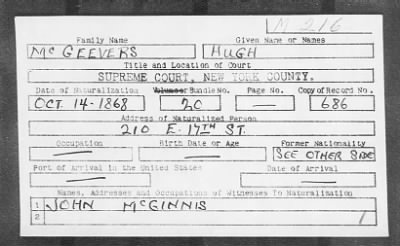 M 216
Family Name Given Name or Names
McGEEVERS HUGH
Title and Location of Court
SUPREME COURT, NEW YORK COUNTY.
Date of Naturalization Volume or Bundle No. Page No. Copy of Record No.
OCT. 14-1868 20 — 686
Address of Naturalized Person
210 E. 17TH ST.
Occupation Birth Date or Age Former Nationality
— — SEE OTHER SIDE
Port of Arrival in the United States Date of Arrival
— —
Names, Addresses and Occupations of Witnesses To Naturalization
1 JOHN McGINNIS
2 1